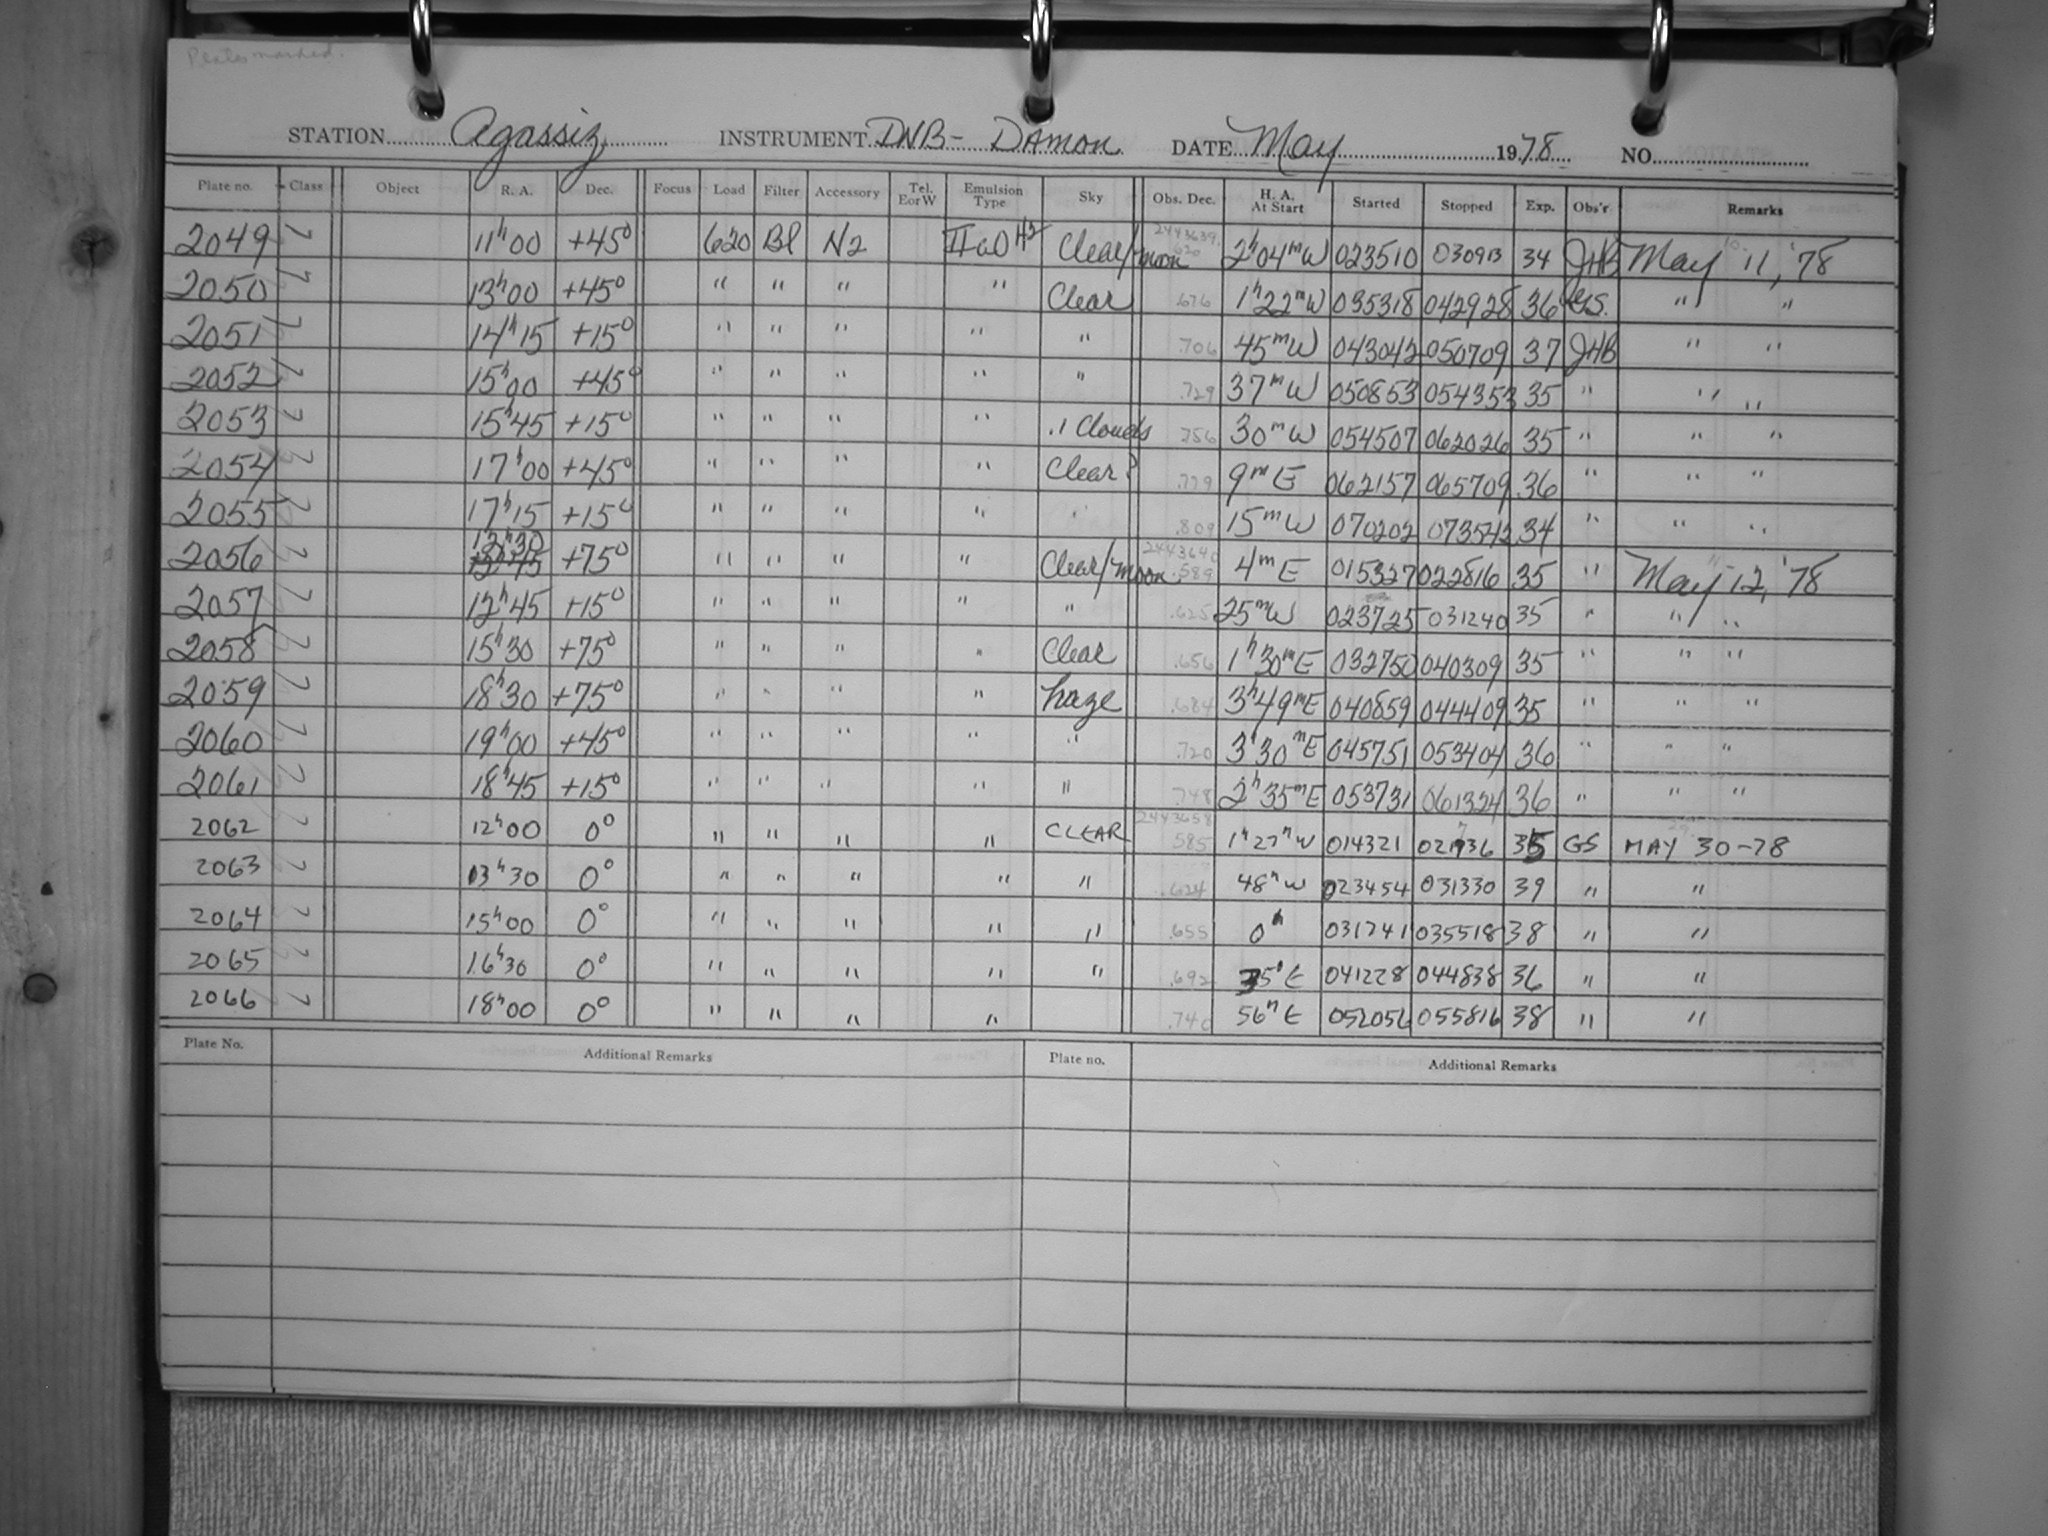 Plates marked.
STATION Agassiz INSTRUMENT DNB- DAMON DATE May 1978 NO.
Plate no. Class Object R. A. Dec. Focus Load Filter Accessory Tel. E or W Emulsion Type Sky Obs. Dec. H. A. At Start Started Stopped Exp. Obs'r. Remarks
2049 7 11h00 +45° 620 Bl N2 IIaO H2 Clear/moon 2443639. 2h04mW 023510 030913 34 JHB May 11, '78
2050 7 13h00 +45° " " " " Clear .676 1h22mW 035318 042928 36 GS. " "
2051 7 14h15 +15° " " " " " .706 45mW 043042 050709 37 JHB " "
2052 7 15h00 +45° " " " " " .729 37mW 050853 054353 35 " " "
2053 7 15h45 +15° " " " " .1 Clouds .756 30mW 054507 062026 35 " " "
2054 7 17h00 +45° " " " " Clear? .779 9mE 062157 065709 36 " " "
2055 7 17h15 +15° " " " " " .809 15mW 070202 073542 34 " " "
2056 7 12h30 +75° " " " " Clear/moon 2443640 .589 4mE 015327 022816 35 " May 12, '78
2057 7 12h45 +15° " " " " " .625 25mW 023725 031240 35 " " "
2058 7 15h30 +75° " " " " Clear .656 1h30mE 032750 040309 35 " " "
2059 7 18h30 +75° " " " " haze .684 3h49mE 040859 044409 35 " " "
2060 7 19h00 +45° " " " " " .720 3h30mE 045751 053404 36 " " "
2061 7 18h45 +15° " " " " " .748 2h35mE 053731 061324 36 " " "
2062 7 12h00 0° " " " " CLEAR 2443658 .585 1h27mW 014321 021736 35 GS MAY 30-78
2063 7 13h30 0° " " " " " .624 48mW 023454 031330 39 " "
2064 7 15h00 0° " " " " " .655 0h 031741 035518 38 " "
2065 7 16h30 0° " " " " " .692 35'E 041228 044838 36 " "
2066 7 18h00 0° " " " " .740 56mE 052056 055816 38 " "
Plate No. Additional Remarks Plate no. Additional Remarks